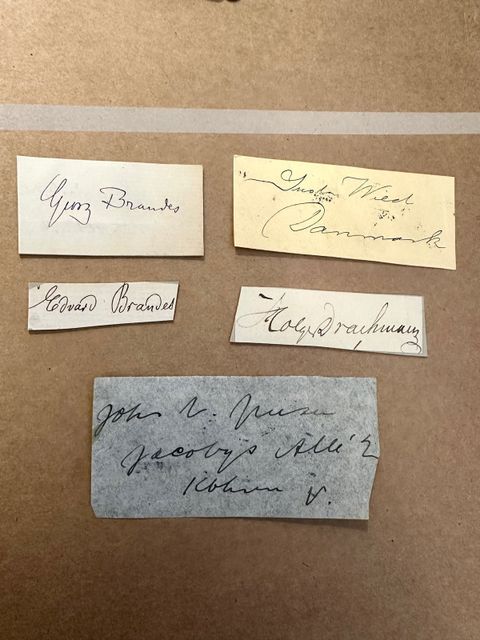 Georg Brandes
Gustav Wied
Danmark
Edvard Brandes
Holger Drachmann
John
Jacobys Allé 2
Kbhvn V.